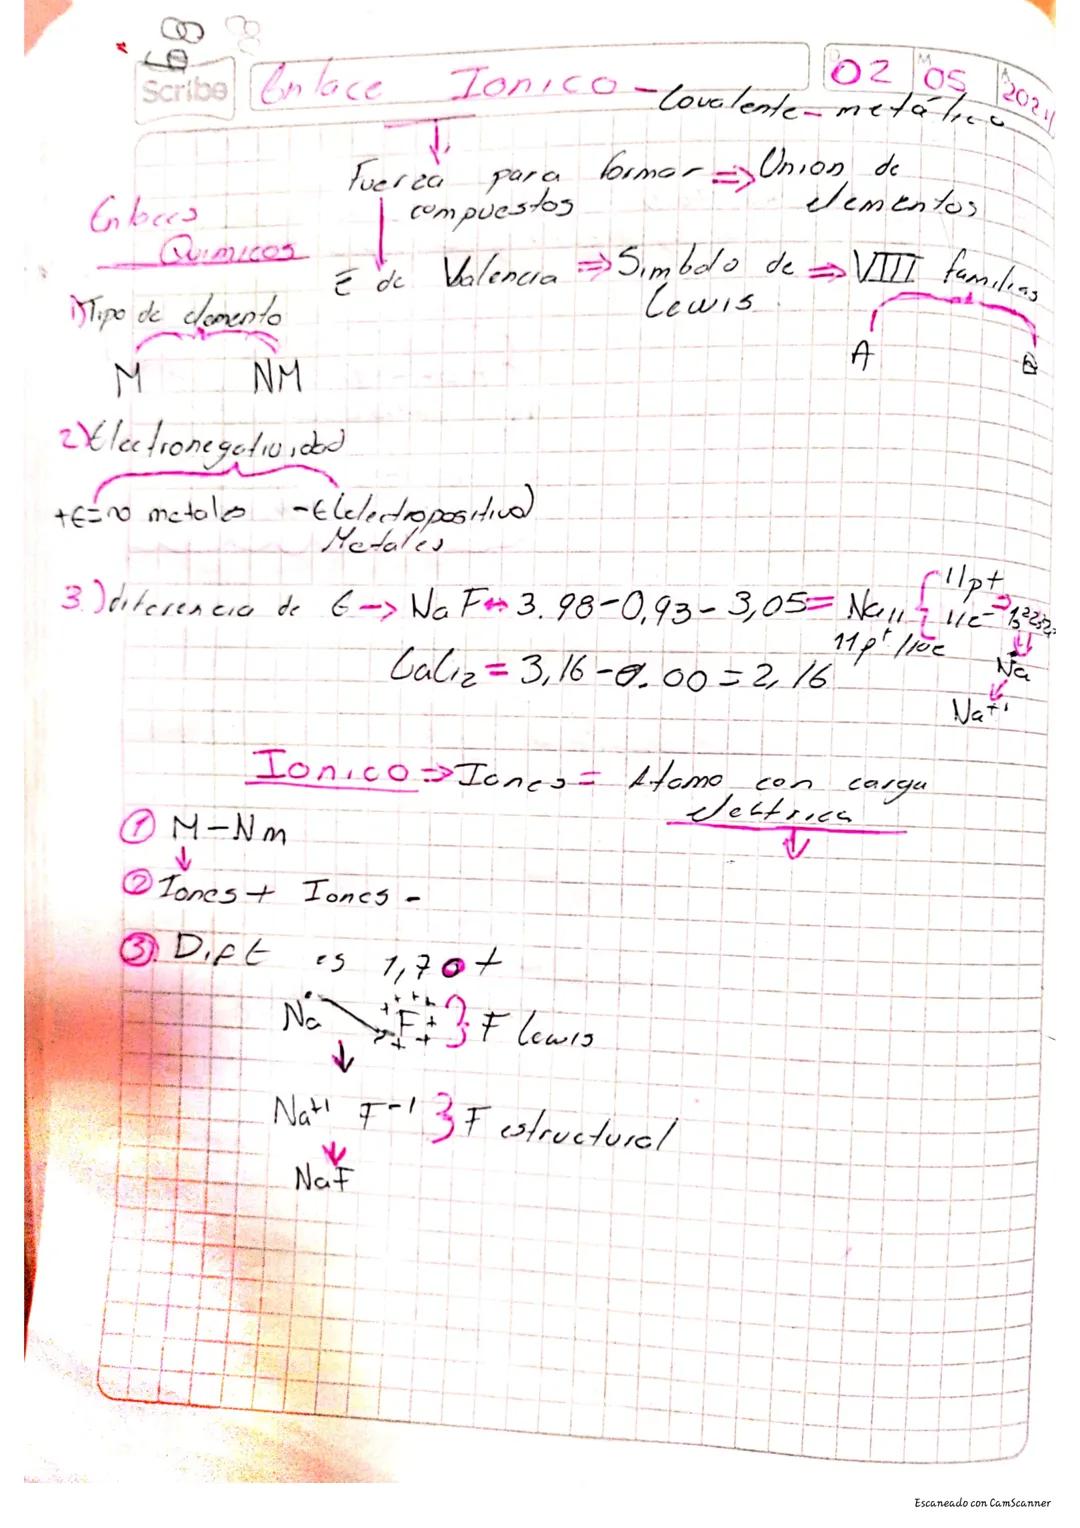 68
Scribe
Enlace Ionico - Covalente - metálico
02 05 2024
Fuerza para formar ⇒ Union de
compuestos elementos
Enlaces
Quimicos
Ē de Valencia ⇒ Simbolo de ⇒ VIII familias
Lewis
1) Tipo de elemento
A B
M NM
2) Electronegatividad
+E = no metales -E (electropositivo)
Metales
3.) diferencia de E -> NaF ↔ 3.98-0,93-3,05 = Na11 { 11p+
11e-
11p+ /10e
Na
CaCl2 = 3,16-0.00 = 2,16
Na+1
Ionico ⇒ Iones = Atomo con carga
electrica
① M-Nm
② Iones + Iones -
③. Dif E es 1,70 +
Na F } F lewis
Na+1 F-1 } F estructural
NaF
Escaneado con CamScanner